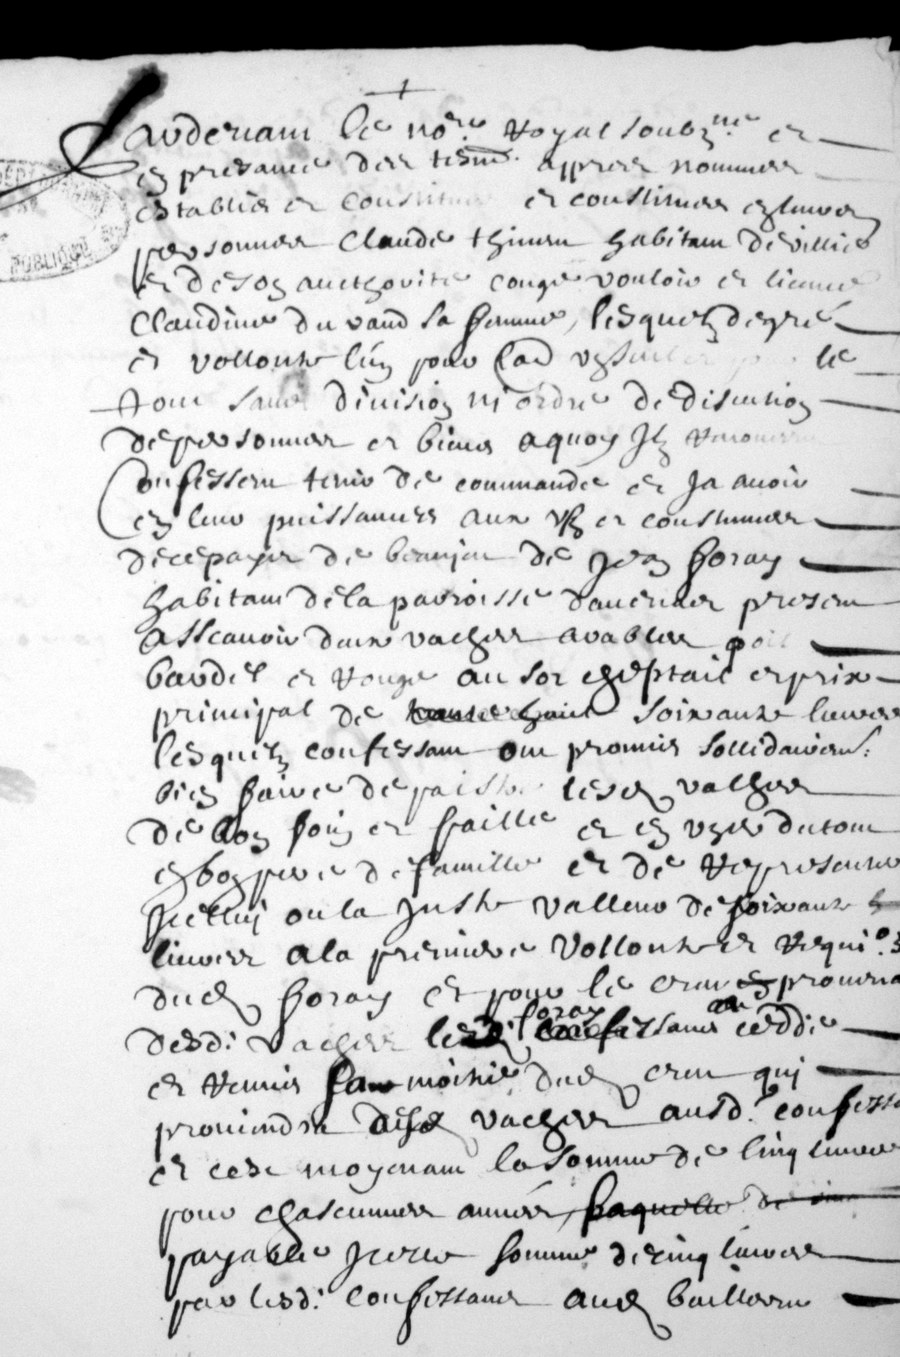 Pardevant le no.re Royal soubz.ne et
en presance des tesm. appres nommes
establis et constitues et constitues en leurs
personnes Claude thinen habitant de villié
et de son aucthorite congé vouloir et licence
Claudine du vand sa femme, lesquelz de gré
et vollonte l'un pour l'aul le
tout sans division ni ordre de discution
de personnes et biens a quoy Ilz renoncent
Confessent tenir de commande et Ja avoir
en leur puissances aux us et coustumes
de ce pays de beaujeu de Jean foray
habitant de la parroisse davenas present
Asscavoir deux vaches arables poil
bardel et rouge au sor cheptail et prix
principal de soixante livres
lesquelz confessant ont promis sollidairem.
bien faire de paistre lesd vaches
de bon foin et paille et en user du tout
en bon pere de famille et de representer
Icelluy ou la Juste valleur de soixante
livres a la premiere vollonte et requi.on
dud foray et pour le creu provenant
desdi vaches led foray cedde
et remis sa moitie dud creu qui
proviendra desd vaches ausd. confessa
et cest moyenant la somme de cinq livres
pour chascunnes année, laquelle de cinq
payable Icelle somme de cinq livres
par lesd. confessans aud bailleur
PUBLIQUE